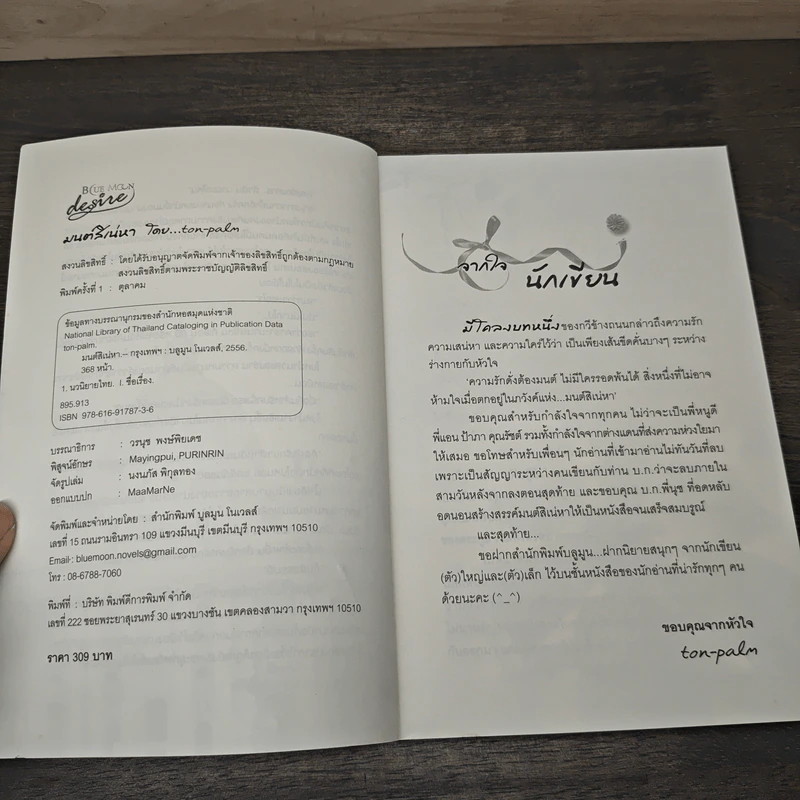 BLUE MOON
desire
มนต์สิเน่หา โดย...ton-palm
สงวนลิขสิทธิ์ : โดยได้รับอนุญาตจัดพิมพ์จากเจ้าของลิขสิทธิ์ถูกต้องตามกฎหมาย
สงวนลิขสิทธิ์ตามพระราชบัญญัติลิขสิทธิ์
พิมพ์ครั้งที่ 1 : ตุลาคม
ข้อมูลทางบรรณานุกรมของสำนักหอสมุดแห่งชาติ
National Library of Thailand Cataloging in Publication Data
ton-palm.
มนต์สิเน่หา.-- กรุงเทพฯ : บลูมูน โนเวลส์, 2556.
368 หน้า.
1. นวนิยายไทย. I. ชื่อเรื่อง.
895.913
ISBN 978-616-91787-3-6
บรรณาธิการ : วรนุช พงษ์พิยเดช
พิสูจน์อักษร : Mayingpui, PURINRIN
จัดรูปเล่ม : นงนภัส พิกุลทอง
ออกแบบปก : MaaMarNe
จัดพิมพ์และจำหน่ายโดย : สำนักพิมพ์ บลูมูน โนเวลส์
เลขที่ 15 ถนนรามอินทรา 109 แขวงมีนบุรี เขตมีนบุรี กรุงเทพฯ 10510
Email-: bluemoon.novels@gmail.com
โทร : 08-6788-7060
พิมพ์ที่ : บริษัท พิมพ์ดีการพิมพ์ จำกัด
เลขที่ 222 ซอยพระยาสุเรนทร์ 30 แขวงบางชัน เขตคลองสามวา กรุงเทพฯ 10510
ราคา 309 บาท
จากใจ
นักเขียน
มีโคลงบทหนึ่งของกวีข้างถนนกล่าวถึงความรัก
ความเสน่หา และความใคร่ไว้ว่า เป็นเพียงเส้นขีดคั่นบางๆ ระหว่าง
ร่างกายกับหัวใจ
'ความรักดั่งต้องมนต์ ไม่มีใครรอดพ้นได้ สิ่งหนึ่งที่ไม่อาจ
ห้ามใจเมื่อตกอยู่ในภวังค์แห่ง...มนต์สิเน่หา'
ขอบคุณสำหรับกำลังใจจากทุกคน ไม่ว่าจะเป็นพี่หนูดี
พี่แอน ป้าภา คุณรัชต์ รวมทั้งกำลังใจจากต่างแดนที่ส่งความห่วงใยมา
ให้เสมอ ขอโทษสำหรับเพื่อนๆ นักอ่านที่เข้ามาอ่านไม่ทันวันที่ลบ
เพราะเป็นสัญญาระหว่างคนเขียนกับท่าน บ.ก.ว่าจะลบภายใน
สามวันหลังจากลงตอนสุดท้าย และขอบคุณ บ.ก.พี่นุช ที่อดหลับ
อดนอนสร้างสรรค์มนต์สิเน่หาให้เป็นหนังสือจนเสร็จสมบรูณ์
และสุดท้าย...
ขอฝากสำนักพิมพ์บลูมูน...ฝากนิยายสนุกๆ จากนักเขียน
(ตัว)ใหญ่และ(ตัว)เล็ก ไว้บนชั้นหนังสือของนักอ่านที่น่ารักทุกๆ คน
ด้วยนะคะ (^_^)
ขอบคุณจากหัวใจ
ton-palm